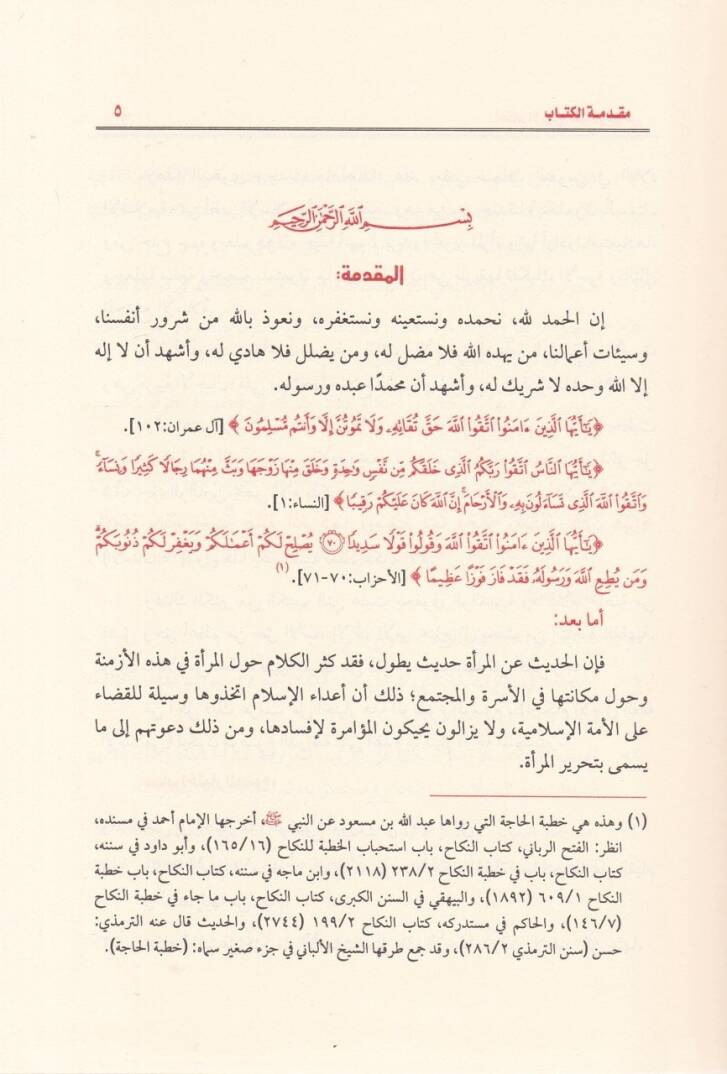 مقدمة الكتاب ٥
بسم الله الرحمن الرحيم
المقدمة:
إن الحمد لله، نحمده ونستعينه ونستغفره، ونعوذ بالله من شرور أنفسنا،
وسيئات أعمالنا، من يهده الله فلا مضل له، ومن يضلل فلا هادي له، وأشهد أن لا إله
إلا الله وحده لا شريك له، وأشهد أن محمدًا عبده ورسوله.
﴿يَٰٓأَيُّهَا ٱلَّذِينَ ءَامَنُوا۟ ٱتَّقُوا۟ ٱللَّهَ حَقَّ تُقَاتِهِۦ وَلَا تَمُوتُنَّ إِلَّا وَأَنتُم مُّسْلِمُونَ﴾ [آل عمران:١٠٢].
﴿يَٰٓأَيُّهَا ٱلنَّاسُ ٱتَّقُوا۟ رَبَّكُمُ ٱلَّذِى خَلَقَكُم مِّن نَّفْسٍ وَٰحِدَةٍ وَخَلَقَ مِنْهَا زَوْجَهَا وَبَثَّ مِنْهُمَا رِجَالًا كَثِيرًا وَنِسَآءً ۚ
وَٱتَّقُوا۟ ٱللَّهَ ٱلَّذِى تَسَآءَلُونَ بِهِۦ وَٱلْأَرْحَامَ ۚ إِنَّ ٱللَّهَ كَانَ عَلَيْكُمْ رَقِيبًا﴾ [النساء:١].
﴿يَٰٓأَيُّهَا ٱلَّذِينَ ءَامَنُوا۟ ٱتَّقُوا۟ ٱللَّهَ وَقُولُوا۟ قَوْلًا سَدِيدًا ٧٠ يُصْلِحْ لَكُمْ أَعْمَٰلَكُمْ وَيَغْفِرْ لَكُمْ ذُنُوبَكُمْ ۗ
وَمَن يُطِعِ ٱللَّهَ وَرَسُولَهُۥ فَقَدْ فَازَ فَوْزًا عَظِيمًا﴾ [الأحزاب:٧٠-٧١].(١)
أما بعد:
فإن الحديث عن المرأة حديث يطول، فقد كثر الكلام حول المرأة في هذه الأزمنة
وحول مكانتها في الأسرة والمجتمع؛ ذلك أن أعداء الإسلام اتخذوها وسيلة للقضاء
على الأمة الإسلامية، ولا يزالون يحيكون المؤامرة لإفسادها، ومن ذلك دعوتهم إلى ما
يسمى بتحرير المرأة.
(١) وهذه هي خطبة الحاجة التي رواها عبد الله بن مسعود عن النبي ﷺ، أخرجها الإمام أحمد في مسنده،
انظر: الفتح الرباني، كتاب النكاح، باب استحباب الخطبة للنكاح (١٦٥/١٦)، وأبو داود في سننه،
كتاب النكاح، باب في خطبة النكاح ٢٣٨/٢ (٢١١٨)، وابن ماجه في سننه، كتاب النكاح، باب خطبة
النكاح ٦٠٩/١ (١٨٩٢)، والبيهقي في السنن الكبرى، كتاب النكاح، باب ما جاء في خطبة النكاح
(١٤٦/٧)، والحاكم في مستدركه، كتاب النكاح ١٩٩/٢ (٢٧٤٤)، والحديث قال عنه الترمذي:
حسن (سنن الترمذي ٢٨٦/٢)، وقد جمع طرقها الشيخ الألباني في جزء صغير سماه: (خطبة الحاجة).